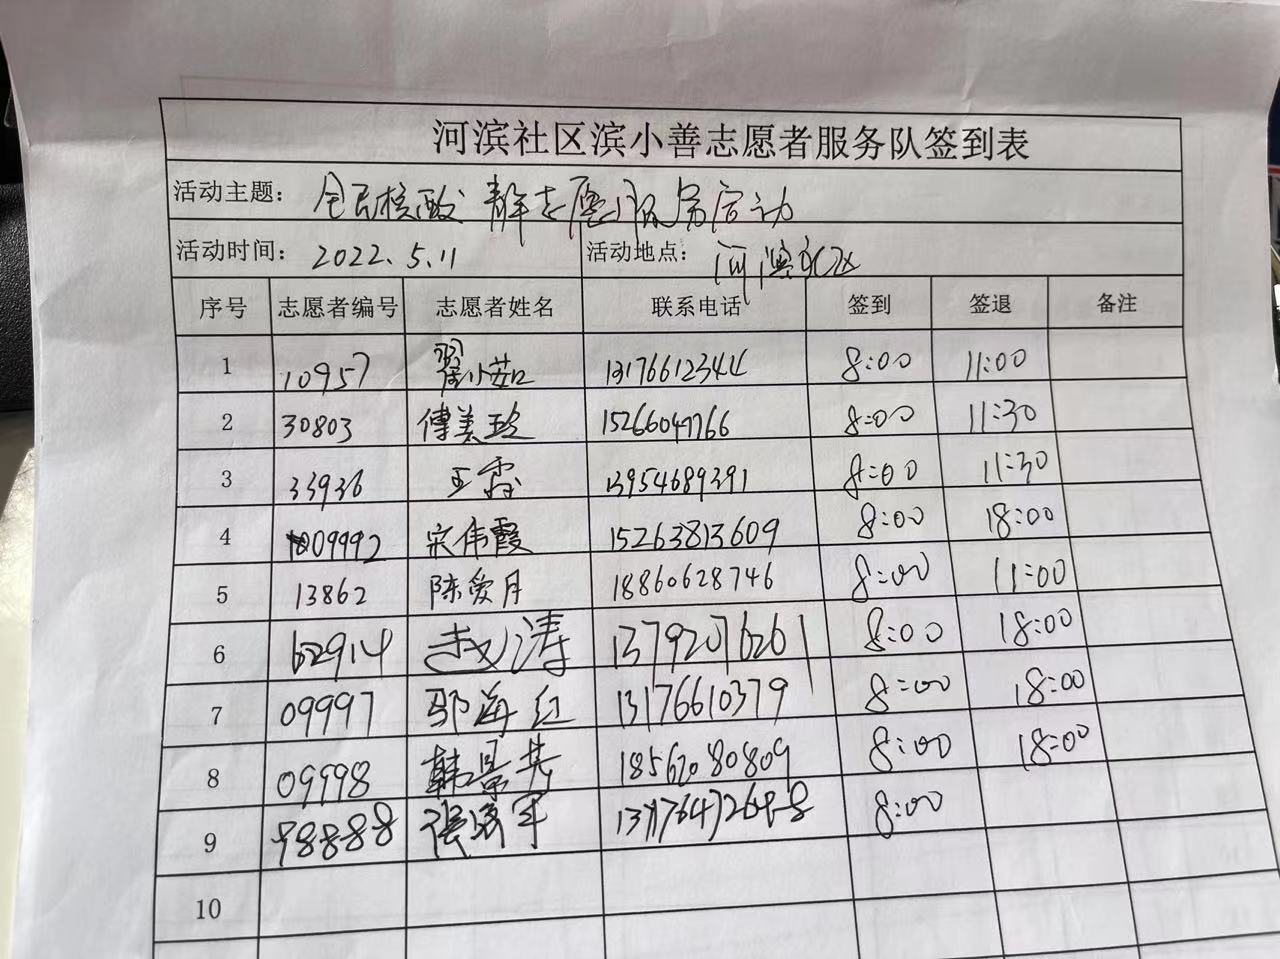 河滨社区滨小善志愿者服务队签到表
活动主题: 全民核酸 静志愿服务活动
活动时间: 2022.5.11 活动地点: 河滨社区
序号 志愿者编号 志愿者姓名 联系电话 签到 签退 备注
1 10957 翟小茹 13176612344 8:00 11:00
2 30803 傅美玲 15266047766 8:00 11:30
3 33936 王霞 13954689391 8:00 11:30
4 09992 宋伟霞 15263813609 8:00 18:00
5 13862 陈爱月 18860628746 8:00 11:00
6 62914 赵涛 13792076261 8:00 18:00
7 09997 邬海红 13176610379 8:00 18:00
8 09998 韩景芳 18562080809 8:00 18:00
9 98888 8:00
10